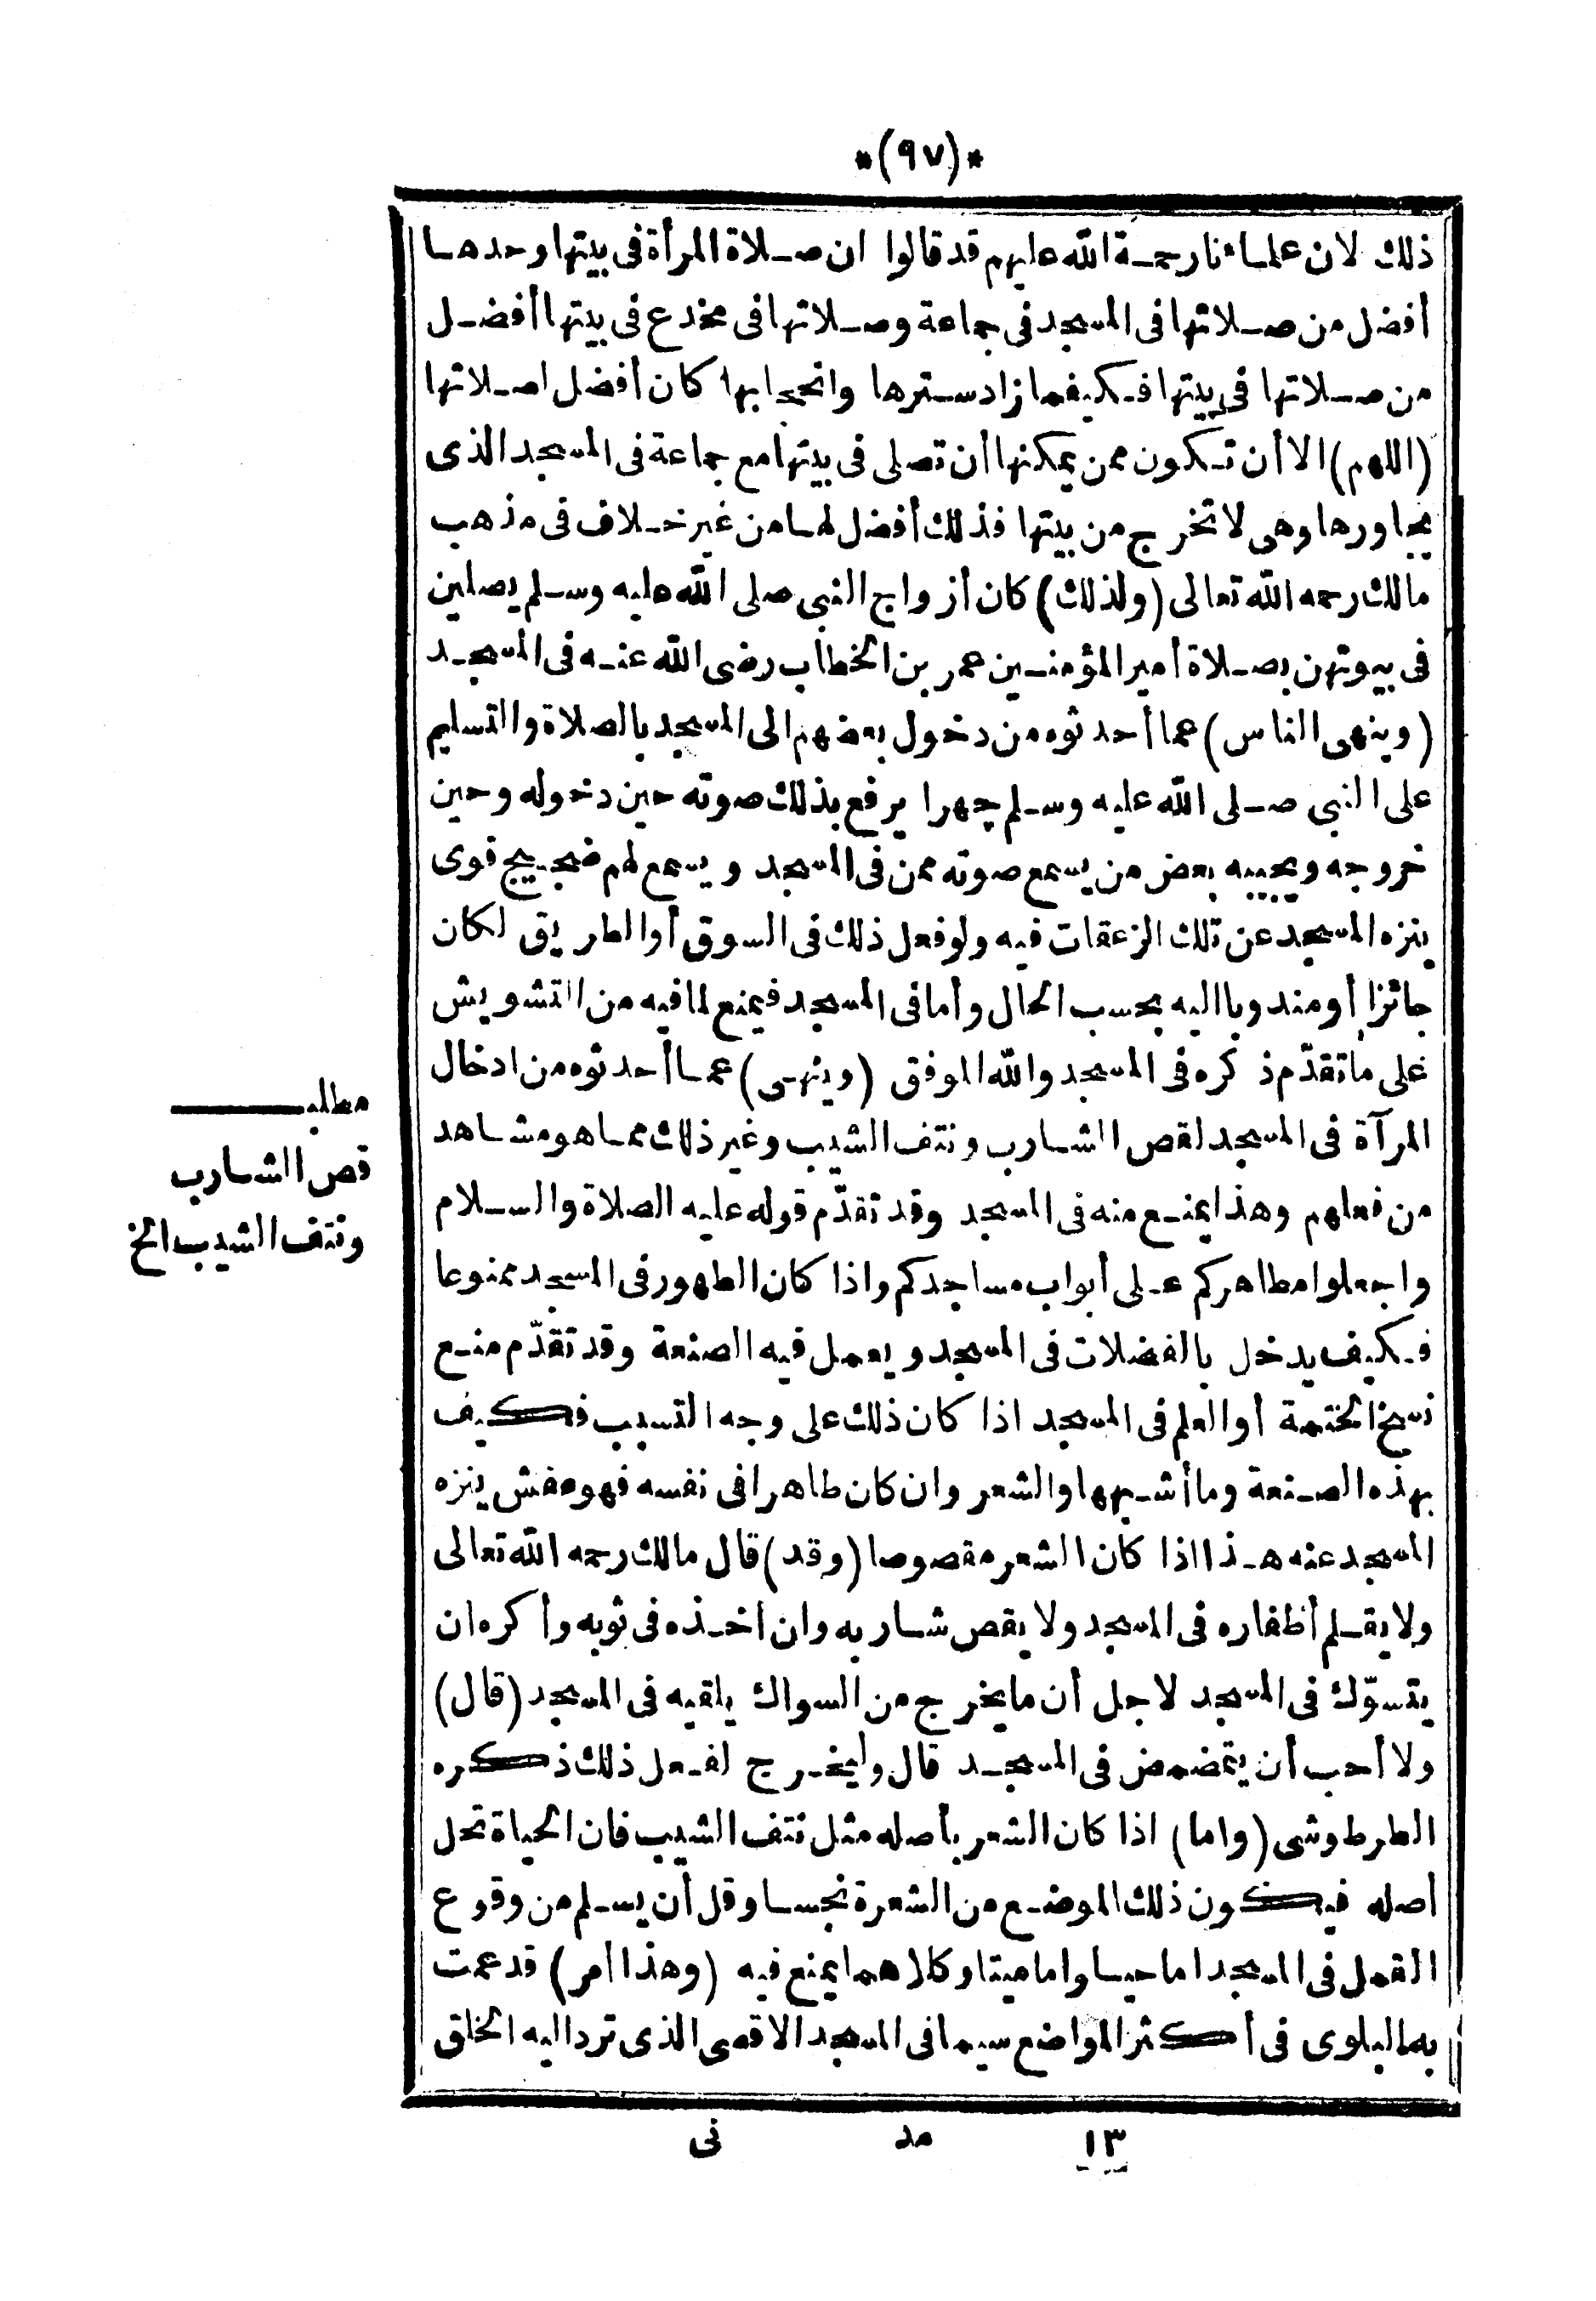 *(٩٧)*
ذلك لان علماءنا رحمة الله عليهم قد قالوا ان صلاة المرأة فى بيتها وحدها
أفضل من صلاتها فى المسجد فى جماعة وصلاتها فى مخدع فى بيتها أفضل
من صلاتها فى بيتها فكيفما زاد سترها وانحجابها كان أفضل لصلاتها
(اللهم) الا أن تكون ممن يمكنها أن تصلى فى بيتها مع جماعة فى المسجد الذى
يجاورها وهى لا تخرج من بيتها فذلك أفضل لها من غير خلاف فى مذهب
مالك رحمه الله تعالى (ولذلك) كان أزواج النبى صلى الله عليه وسلم يصلين
فى بيوتهن بصلاة أمير المؤمنين عمر بن الخطاب رضى الله عنه فى المسجد
(وينهى الناس) عما أحدثوه من دخول بعضهم الى المسجد بالصلاة والتسليم
على النبى صلى الله عليه وسلم جهرا يرفع بذلك صوته حين دخوله وحين
خروجه ويجيبه بعض من يسمع صوته ممن فى المسجد ويسمع لهم ضجيج قوى
ينزه المسجد عن تلك الزعقات فيه ولو فعل ذلك فى السوق أو الطريق لكان
جائزا أو مندوبا اليه بحسب الحال وأما فى المسجد فيمنع لما فيه من التشويش
على ما تقدّم ذكره فى المسجد والله الموفق (وينهى) عما أحدثوه من ادخال
المرآة فى المسجد لقص الشارب ونتف الشيب وغير ذلك مما هو مشاهد
من فعلهم وهذا يمنع منه فى المسجد وقد تقدّم قوله عليه الصلاة والسلام
واجعلوا مطاهركم على أبواب مساجدكم واذا كان الطهور فى المسجد ممنوعا
فكيف يدخل بالفضلات فى المسجد ويعمل فيه الصنعة وقد تقدّم منع
نسخ الختمة أو العلم فى المسجد اذا كان ذلك على وجه التسبب فكيف
بهذه الصنعة وما أشبهها والشعر وان كان طاهرا فى نفسه فهو عفش ينزه
المسجد عنه هذا اذا كان الشعر مقصوصا (وقد) قال مالك رحمه الله تعالى
ولا يقلم أظفاره فى المسجد ولا يقص شاربه وان أخذه فى ثوبه وأكره ان
يتسوّك فى المسجد لاجل أن ما يخرج من السواك يلقيه فى المسجد (قال)
ولا أحب أن يتمضمض فى المسجد قال وليخرج لفعل ذلك ذكره
الطرطوشى (واما) اذا كان الشعر بأصله مثل نتف الشيب فان الحياة تحل
أصله فيكون ذلك الموضع من الشعرة نجسا وقل أن يسلم من وقوع
القمل فى المسجد اما حيا واما ميتا وكلاهما يمنع فيه (وهذا أمر) قد عمت
به البلوى فى أكثر المواضع سيما فى المسجد الاقصى الذى ترد اليه الخلق
مطلب
قص الشارب
ونتف الشيب الخ
١٣ مد نى